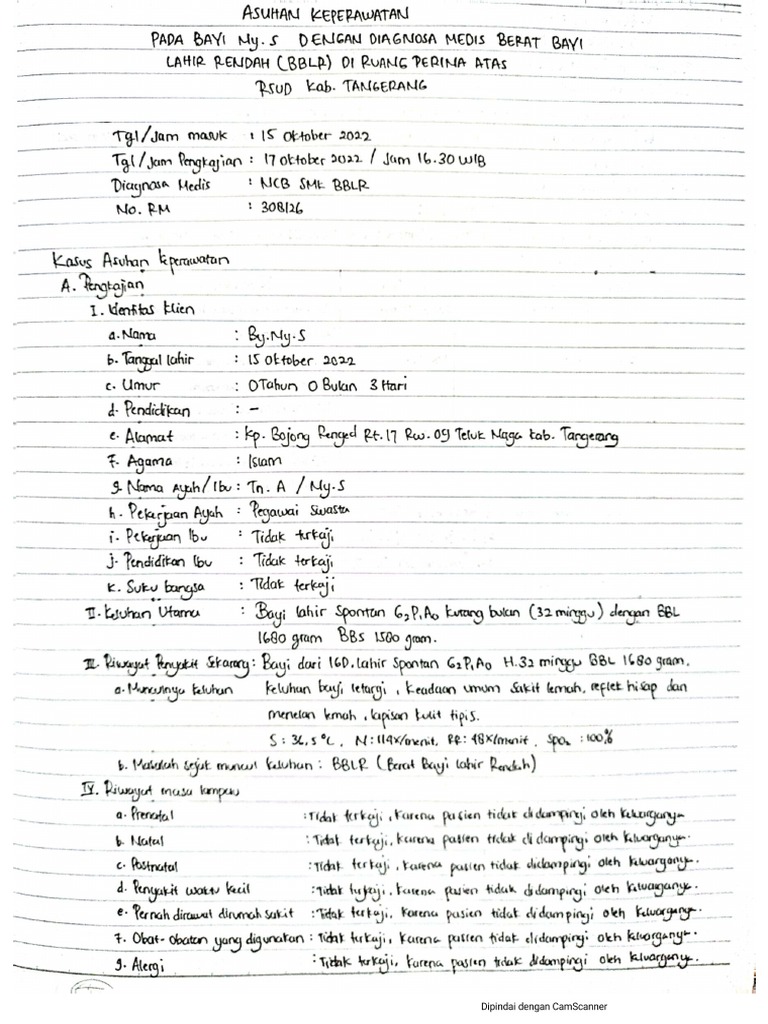 ASUHAN KEPERAWATAN
PADA BAYI Ny.S DENGAN DIAGNOSA MEDIS BERAT BAYI
LAHIR RENDAH (BBLR) DI RUANG PERINA ATAS
RSUD Kab. TANGERANG
Tgl/Jam masuk : 15 Oktober 2022
Tgl/Jam Pengkajian : 17 Oktober 2022 / Jam 16.30 WIB
Diagnosa Medis : NCB SMK BBLR
No. RM : 308126
Kasus Asuhan Keperawatan
A. Pengkajian
I. Identitas Klien
a. Nama : By.Ny.S
b. Tanggal lahir : 15 Oktober 2022
c. Umur : 0 Tahun 0 Bulan 3 Hari
d. Pendidikan : -
e. Alamat : Kp. Bojong Renged Rt.17 Rw.09 Teluk Naga Kab. Tangerang
f. Agama : Islam
g. Nama Ayah/Ibu : Tn. A / Ny.S
h. Pekerjaan Ayah : Pegawai Swasta
i. Pekerjaan Ibu : Tidak terkaji
j. Pendidikan Ibu : Tidak terkaji
k. Suku bangsa : Tidak terkaji
II. Keluhan Utama : Bayi lahir spontan G2P1A0 kurang bulan (32 minggu) dengan BBL
1680 gram BBS 1500 gram.
III. Riwayat Penyakit Sekarang : Bayi dari IGD. lahir spontan G2P1A0 H.32 minggu BBL 1680 gram.
a. Munculnya keluhan Keluhan bayi letargi, Keadaan umum sakit lemah, reflek hisap dan
menelan lemah, lapisan kulit tipis.
S : 36,5°C, N : 114x/menit, RR : 48x/menit, SpO2 : 100%
b. Masalah sejak muncul keluhan : BBLR (Berat Bayi lahir Rendah)
IV. Riwayat masa lampau
a. Prenatal : Tidak terkaji, karena pasien tidak didampingi oleh keluarganya
b. Natal : Tidak terkaji, karena pasien tidak didampingi oleh keluarganya.
c. Postnatal : Tidak terkaji, karena pasien tidak didampingi oleh keluarganya.
d. Penyakit waktu kecil : Tidak terkaji, karena pasien tidak didampingi oleh keluarganya.
e. Pernah dirawat dirumah sakit : Tidak terkaji, karena pasien tidak didampingi oleh keluarganya.
f. Obat-obatan yang digunakan : Tidak terkaji, karena pasien tidak didampingi oleh keluarganya.
g. Alergi : Tidak terkaji, karena pasien tidak didampingi oleh keluarganya.
Dipindai dengan CamScanner